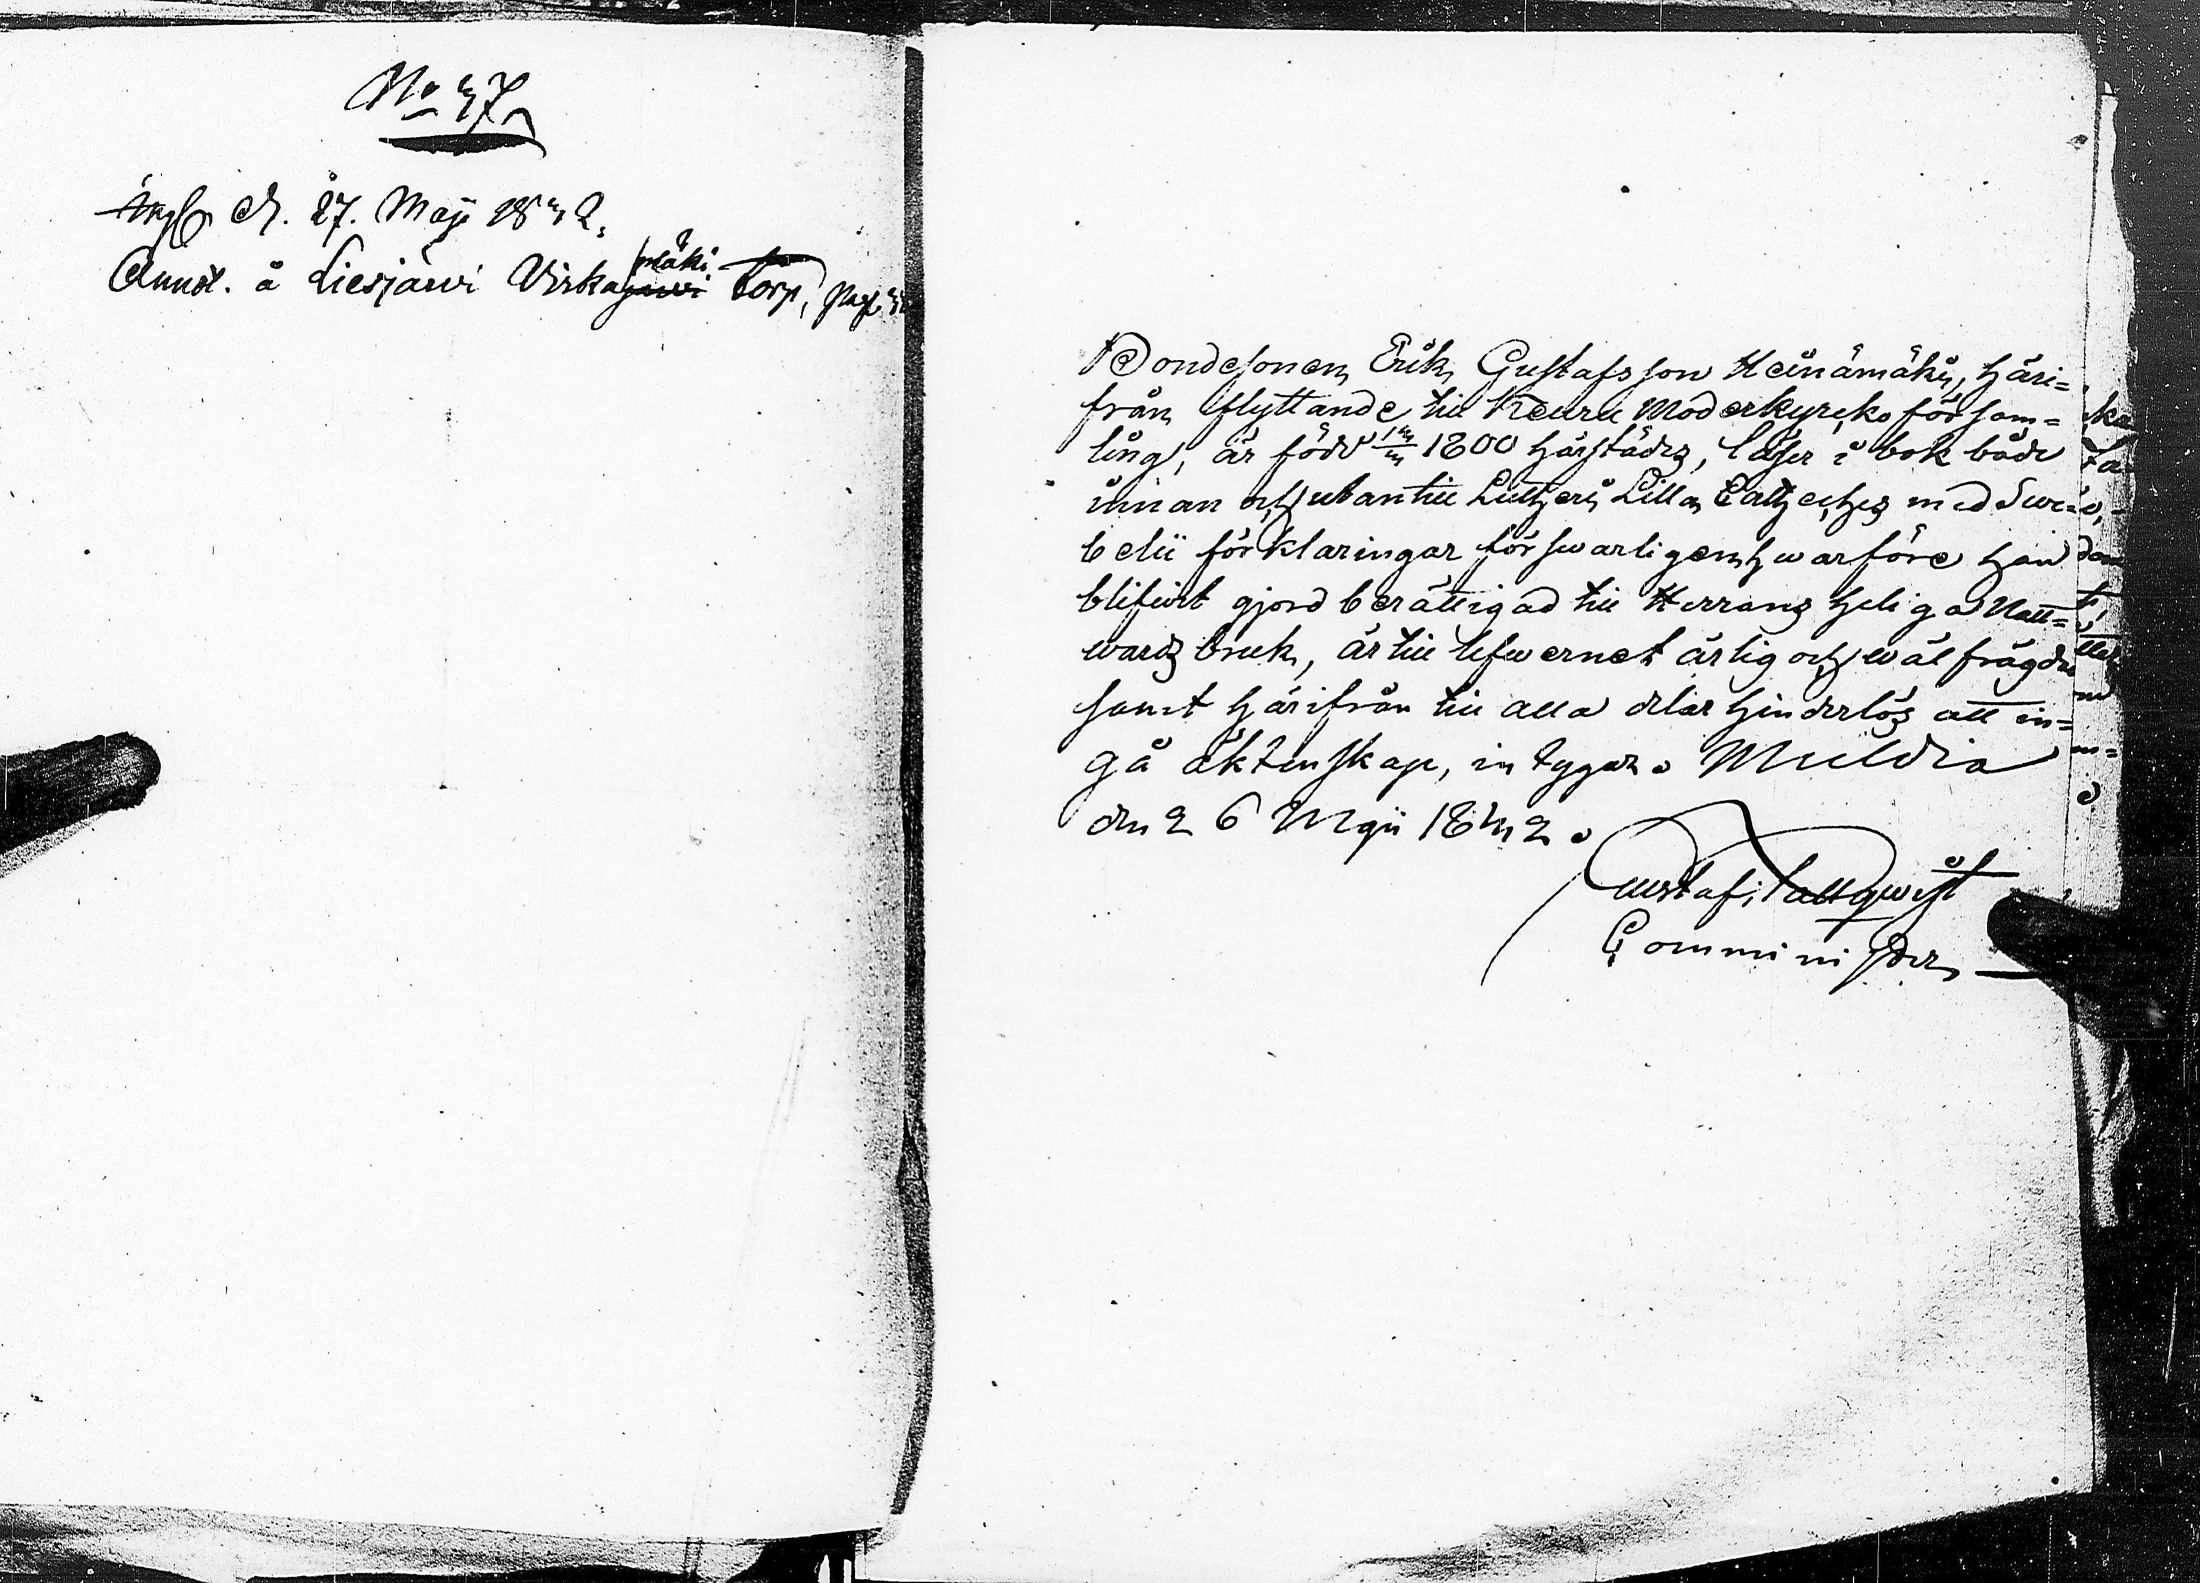 No 47
d. 27. Maji 1842.
Annot. å Liesjärvi Virkajärvi mäki torp, pag.
Bondesonen Erik Gustafsson Heinämäki, häri=
från flyttande till Keuru Moderkyrko försam=
ling, är född 1800 härstädes, läser i bok både
innan och utantill Lutheri Lilla Catheches med Swe=
belii förklaringar försvarligen, hwarföre han
blifwit gjord berättigad till Herrans heliga Natt=
wards bruk, är till lefwernet ärlig och wälfrägdad
samt härifrån till alla delar hinderlös att in=
gå äktenskap, intygar. Muldia
den 26 Maji 1842.
Gustaf Tallqwist
Comminister